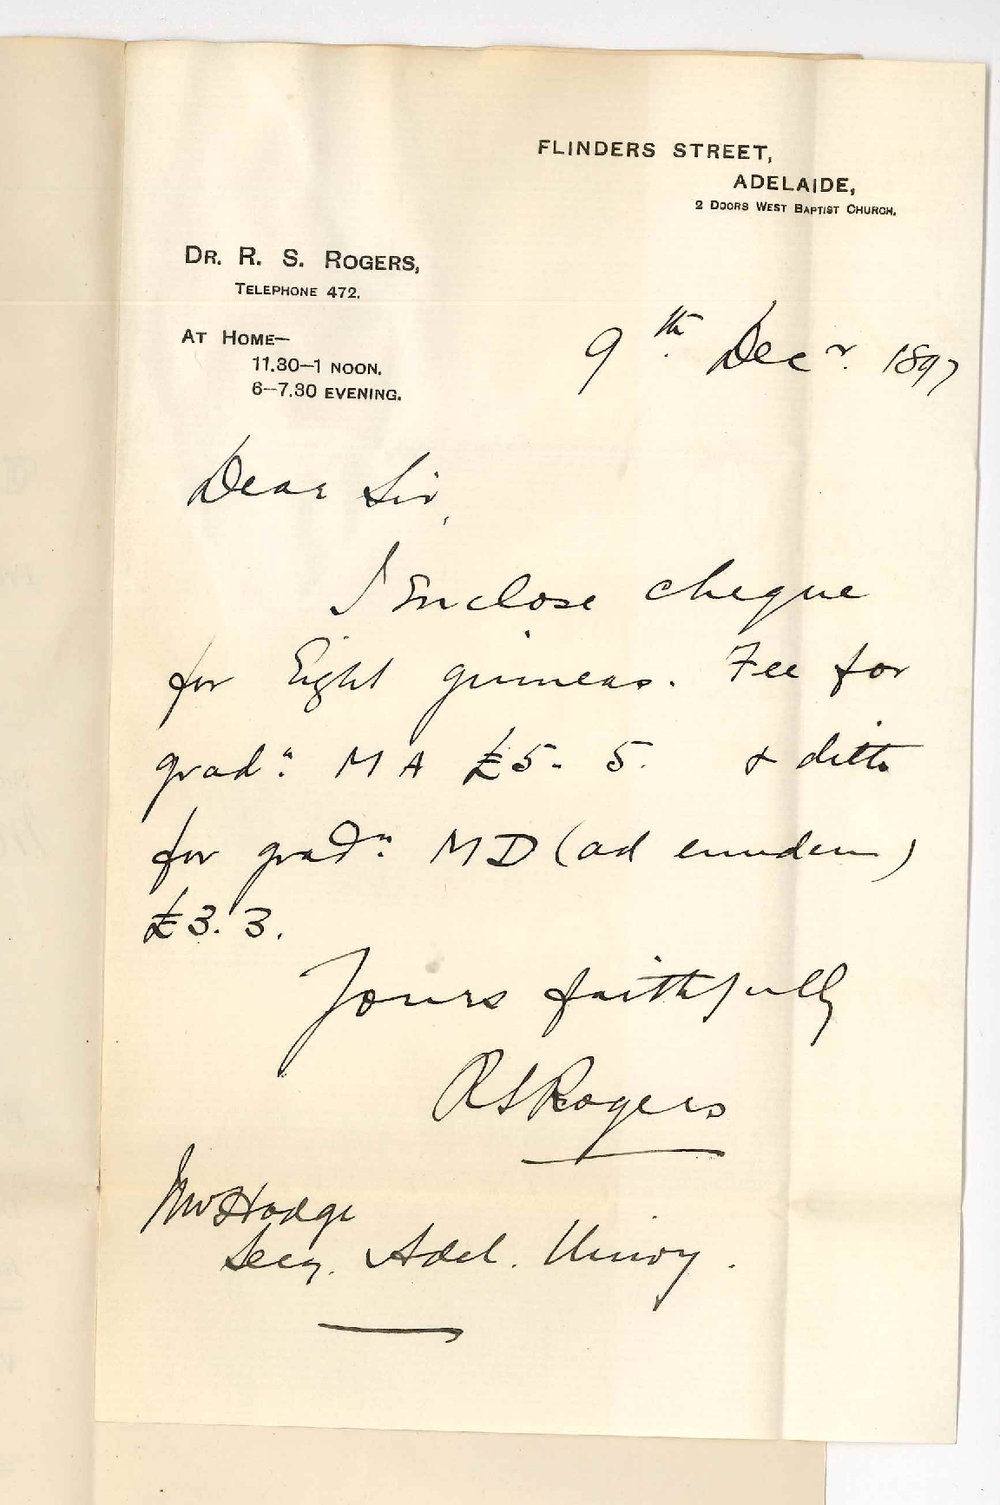 FLINDERS STREET,
ADELAIDE,
2 DOORS WEST BAPTIST CHURCH.
DR. R. S. ROGERS,
TELEPHONE 472.
AT HOME—
11.30—1 NOON.
6—7.30 EVENING.
9th Decr. 1897
Dear Sir,
I Enclose cheque
for Eight guineas. Fee for
gradn. MA £5. 5. & ditto
for gradn. MD (ad eundem)
£3. 3.
Yours faithfully
RSRogers
Hodge
Secy. Adel. Univy.